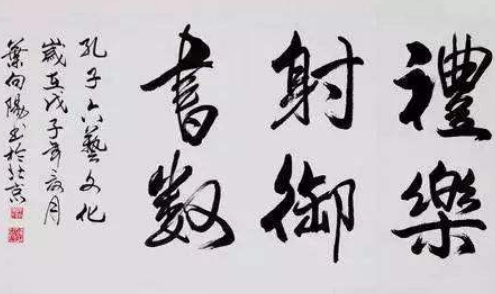 禮樂
射御
書数
孔子六藝文化
歲在戊子年夏月
葉向陽書於北京